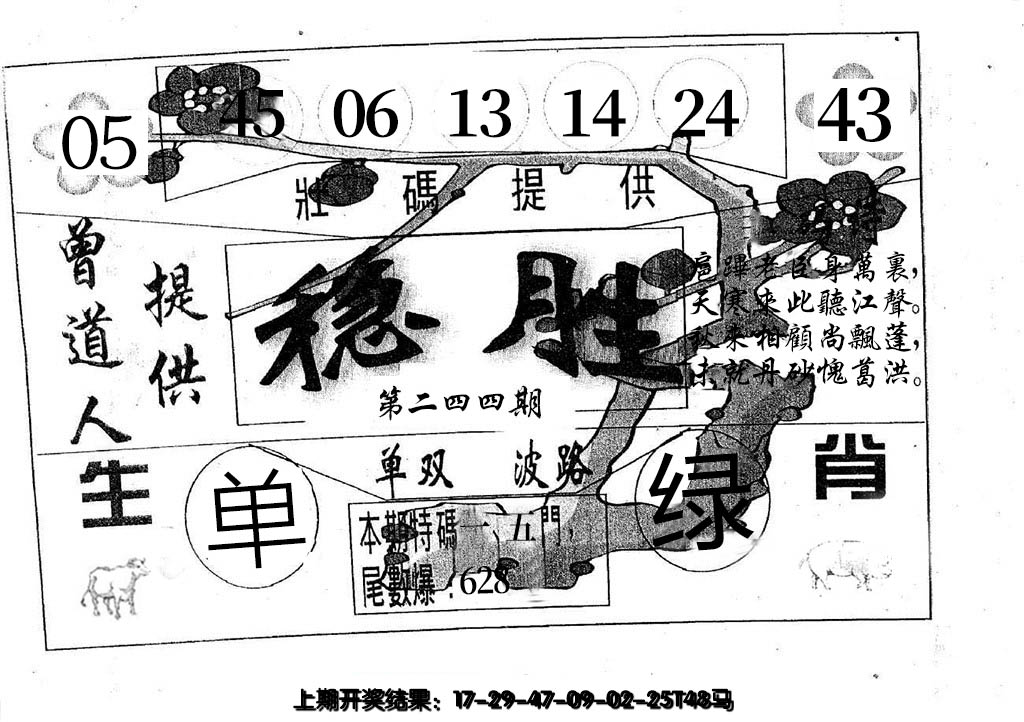 05 45 06 13 14 24 43
壯碼提供
曾道人
提供
稳胜
第二四四期
老臣身萬裏，
天寒來此聽江聲。
秋来相顧尚飄蓬，
未就丹砂愧葛洪。
生
肖
单双
波路
单
绿
本期特碼一、五門，
尾數爆：628
上期开奖结果：17-29-47-09-02-25T48马